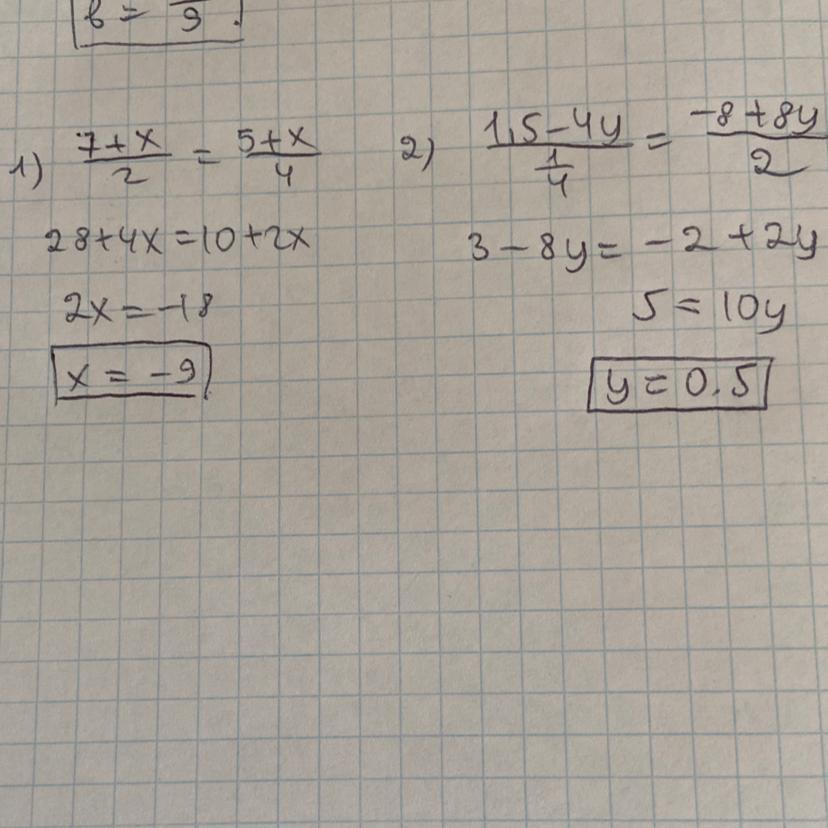 b = 9.
1) (7+x)/2 = (5+x)/4
28+4x=10+2x
2x=-18
x = -9
2) (1,5-4y)/(1/4) = (-8+8y)/2
3-8y=-2+2y
5=10y
y=0.5